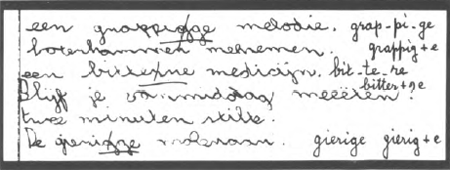 een grappigge melodie. grap-pi-ge
boterhammen meenemen. grappig+e
een bitterne medicijn. bit-te-re
Blijf je vanmiddag meeëten? bitter+e
twee minuten stilte.
De gierigge molenaar. gierige gierig+e